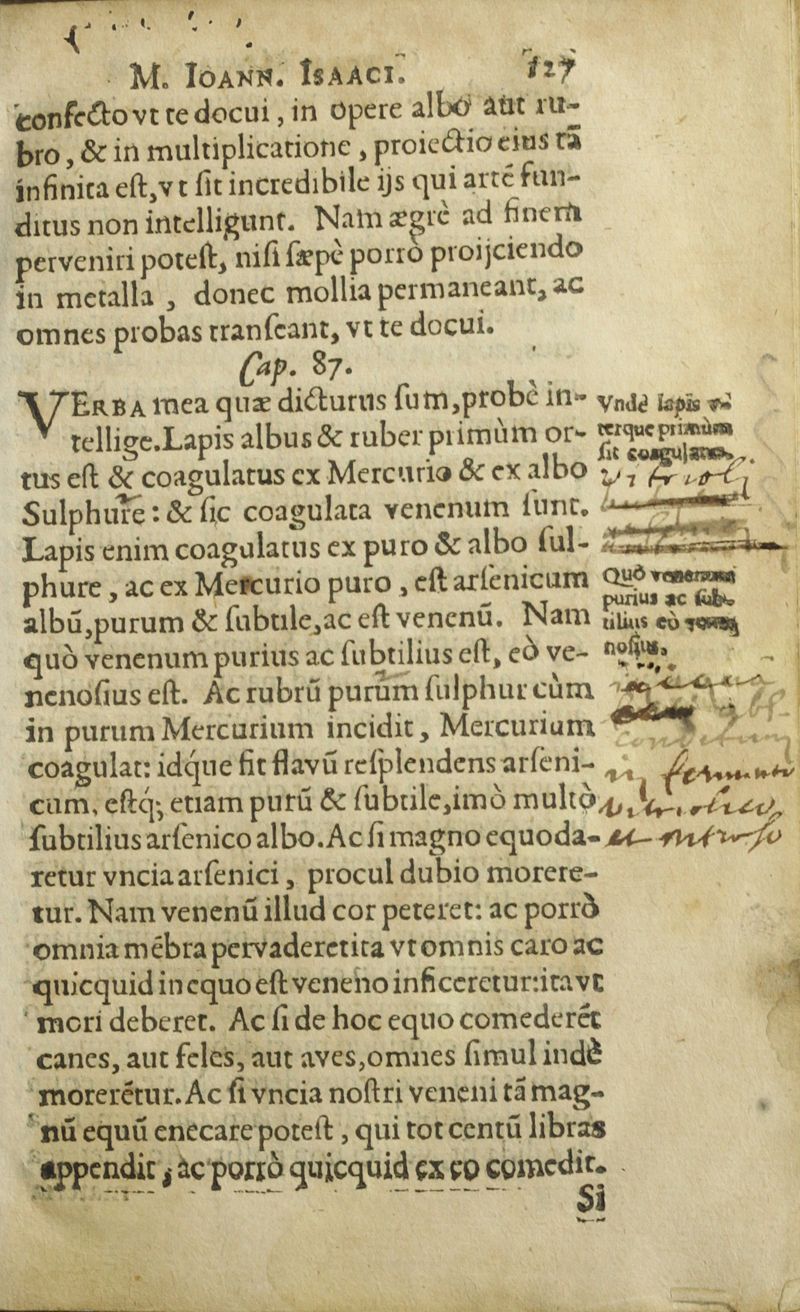 M. IOANN. ISAACI. 127
confecto vt te docui, in opere albo aut ru-
bro, & in multiplicatione, proiectio eius tā
infinita est, vt sit incredibile ijs qui artē fun-
ditus non intelligunt. Nam ægrè ad finem
perveniri potest, nisi sæpè porrò proijciendo
in metalla, donec mollia permaneant, ac
omnes probas transeant, vt te docui.
Cap. 87.
VERBA mea quæ dicturus sum, probè in-
tellige. Lapis albus & ruber primùm or-
tus est & coagulatus ex Mercurio & ex albo
Sulphure: & sic coagulata venenum sunt.
Lapis enim coagulatus ex puro & albo sul-
phure, ac ex Mercurio puro, est arsenicum
albū, purum & subtile, ac est venenū. Nam
quò venenum purius ac subtilius est, eò ve-
nenosius est. Ac rubrū purum sulphur cùm
in purum Mercurium incidit, Mercurium
coagulat: idque fit flavū resplendens arseni-
cum, estq; etiam purū & subtile, imò multò
subtilius arsenico albo. Ac si magno equo da-
retur vncia arsenici, procul dubio morere-
tur. Nam venenū illud cor peteret: ac porrò
omnia mēbra pervaderet ita vt omnis caro ac
quicquid in equo est veneno inficeretur: ita vt
mori deberet. Ac si de hoc equo comederēt
canes, aut feles, aut aves, omnes simul indè
morerētur. Ac si vncia nostri veneni tā mag-
nū equū enecare potest, qui tot centū libras
appendit, ac porrò quicquid ex eo comedit.
Si
Vndè lapis v-
terque primùm
sit coagulatus.
Quò venenum
purius ac sub-
tilius eò venen
nosius.